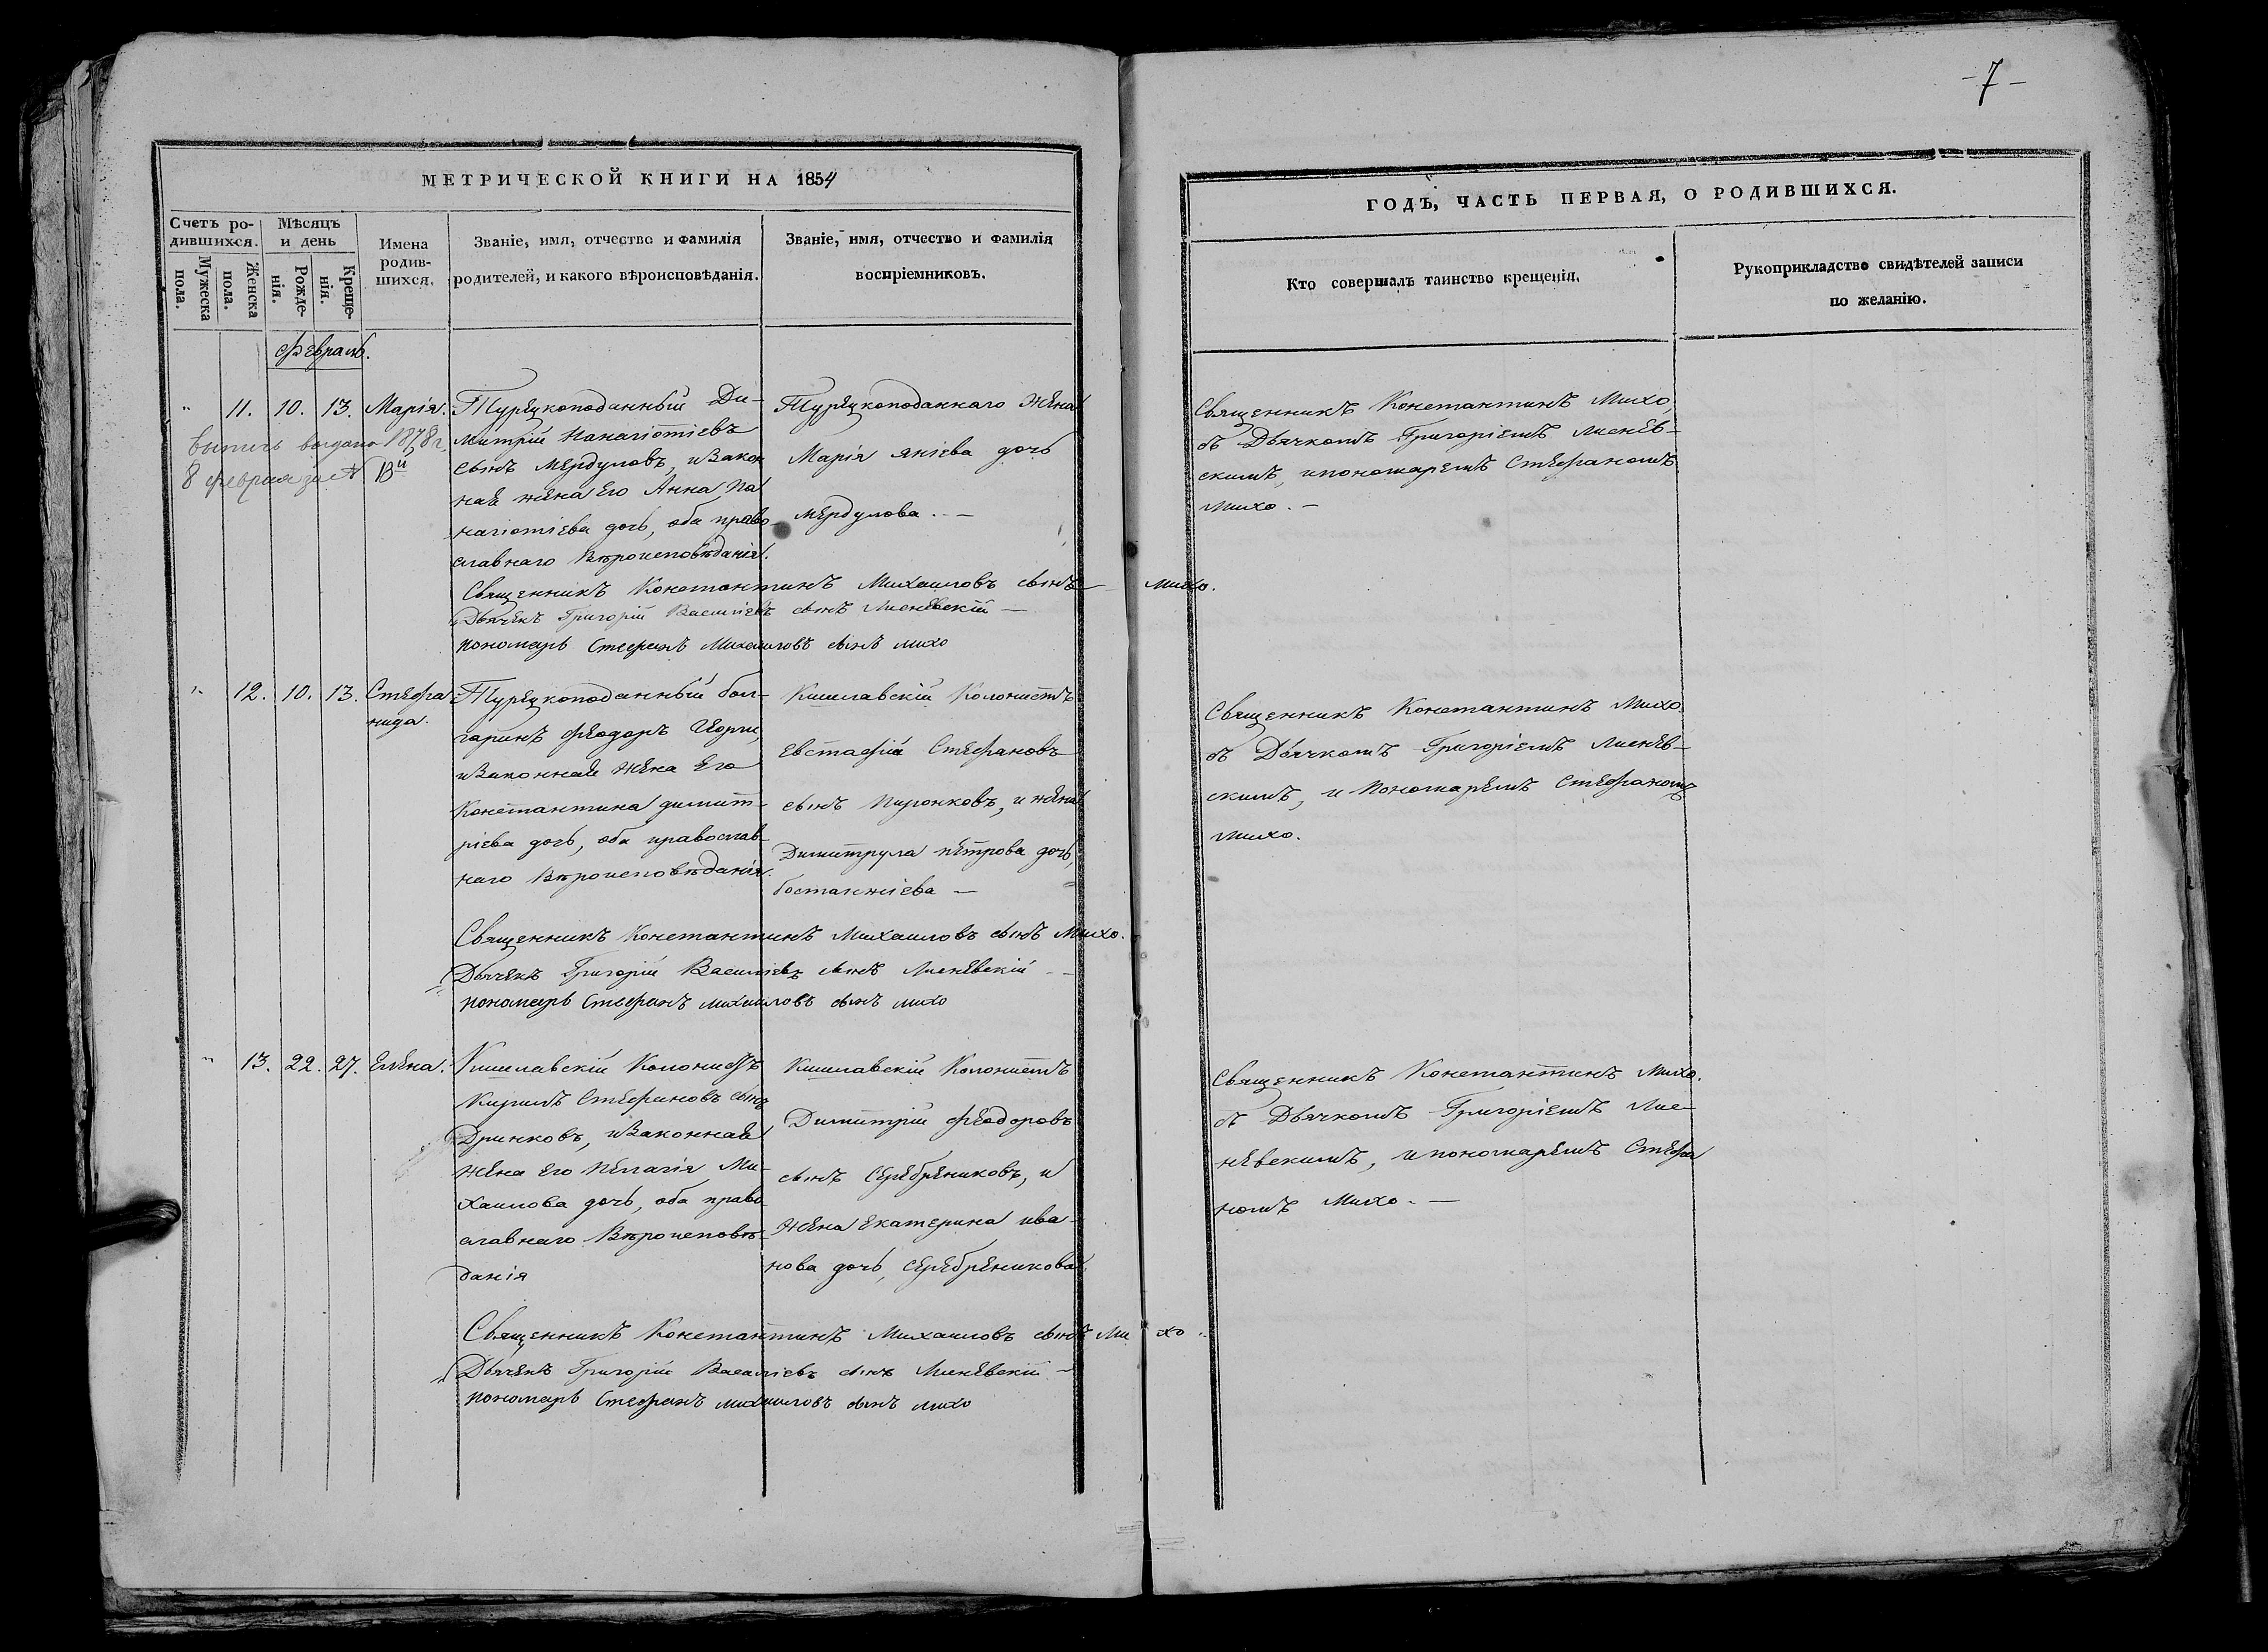 -7-
МЕТРИЧЕСКОЙ КНИГИ НА 1854
Счетъ ро-
дившихся.
Мужеска
пола.
Женска
пола.
Мѣсяцъ
и день
Рожде-
нія.
Креще-
нія.
Имена
родив-
шихся.
Званіе, имя, отчество и фамилія
родителей, и какого вѣроисповѣданія.
Званіе, имя, отчество и фамилія
воспріемниковъ.
ГОДЪ, ЧАСТЬ ПЕРВАЯ, О РОДИВШИХСЯ.
Кто совершалъ таинство крещенія.
Рукоприкладство свидѣтелей записи
по желанію.
Февраль.
" 11. 10. 13. Марія.
выпись выдана 1878 г.
8 февраля за №
Турецкоподанный Ди-
митрій Панагіотіевъ
сынъ Мердуловъ, и закон
ная жена его Анна Па
нагіотіева дочь, оба право
славнаго Вѣроисповѣданія.
Турецкоподаннаго жена
Марія Яніева дочь
Мердулова. —
Священникъ Константинъ Михо,
съ Дьячкомъ Григоріемъ Лиснев-
скимъ, и пономаремъ Стефаномъ
Михо. —
Священникъ Константинъ Михаиловъ сынъ Михо.
Дьячекъ Григорій Василіевъ сынъ Лисневскій —
пономарь Стефанъ Михаиловъ сынъ михо
" 12. 10. 13. Стефа
нида.
Турецкоподанный бол-
гаринъ Феодоръ Георги,
и законная жена его
Константина димит-
ріева дочь, оба православ
наго Вѣроисповѣданія.
Кишлавскій Колонистъ
Евстафій Стефановъ
сынъ Пиронковъ, и жена
Димитрула петрова дочь,
бостанжіева —
Священникъ Константинъ Михо
съ Дьячкомъ Григоріемъ Лиснев-
скимъ, и Пономаремъ Стефаномъ
Михо.
Священникъ Константинъ Михаиловъ сынъ Михо.
Дьячекъ Григорій Василіевъ сынъ Лисневскій —
пономарь Стефанъ михаиловъ сынъ михо
" 13. 22. 27. Елена.
Кишлавскій Колонистъ
Кирилъ Стефановъ сынъ
Дринковъ, и законная
жена его Пелагія Ми-
хаилова дочь, оба право
славнаго Вѣроисповѣ-
данія
Кишлавскій Колонистъ
Димитрій Феодоровъ
сынъ Серебрениковъ, и
жена Екатерина ива-
нова дочь, Серебреникова
Священникъ Константинъ Михо.
съ Дьячкомъ Григоріемъ Лис-
невскимъ, и пономаремъ Стефа
номъ Михо. —
Священникъ Константинъ Михаиловъ сынъ Михо.
Дьячекъ Григорій Василіевъ сынъ Лисневскій —
пономарь Стефанъ михаиловъ сынъ михо